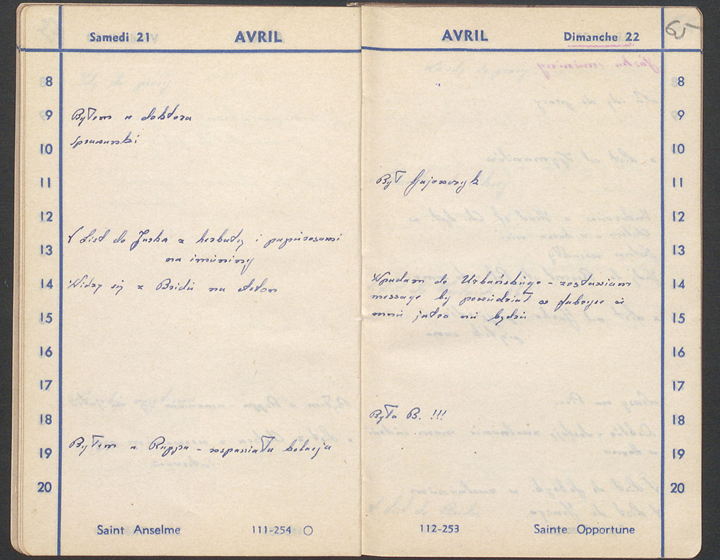 Samedi 21 AVRIL
8
9 Byłem u doktora
10
11
12
13 V List do Jacka z herbatą i papierosami
na imieniny
14 Widzę się z na
15
16
17
18
19 Byłem u Ruppa - wspaniała kolacja
20
Saint Anselme 111-254
AVRIL Dimanche 22
8
9
10
11 Był Gajewczyk
12
13
14 Wpadam do Urbańskiego - zostawiam
message by powiedział w fabryce iż
15 mnie jutro nie będzie
16
17
18 Była B. !!!
19
20
112-253 Sainte Opportune